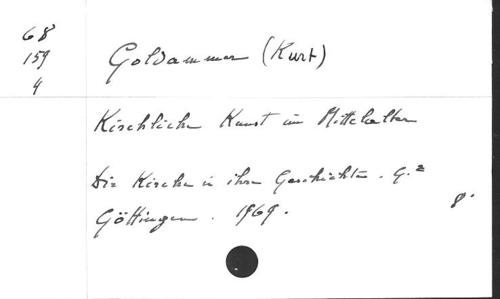 68
159
4
Goldammer (Kurt)
Kirchliche Kunst im Mittelalter
Die Kirche in ihrer Geschichte. G.²
Göttingen. 1969.
8°